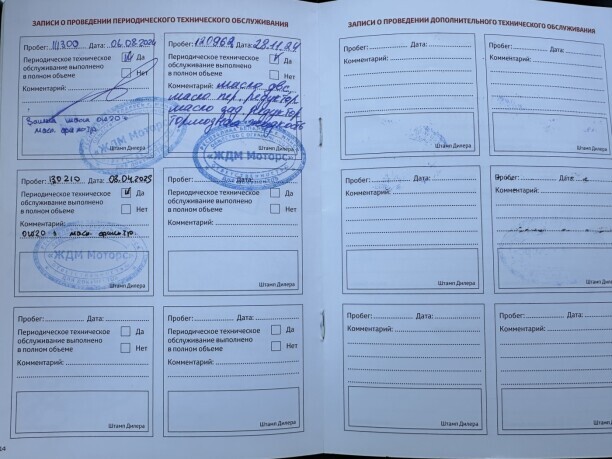 ЗАПИСИ О ПРОВЕДЕНИИ ПЕРИОДИЧЕСКОГО ТЕХНИЧЕСКОГО ОБСЛУЖИВАНИЯ
Пробег: 111300 Дата: 06.08.2024
Периодическое техническое обслуживание выполнено в полном объеме
Да
Нет
Комментарий:
масл. фильтр.
Штамп Дилера
Пробег: 120962 Дата: 28.11.24
Периодическое техническое обслуживание выполнено в полном объеме
Да
Нет
Комментарий: масло двс,
масло пер. редуктор
масло зад. редуктор
тормозная жидкость
«ЖДМ Моторс»
Штамп Дилера
Пробег: 130210 Дата: 08.04.2025
Периодическое техническое обслуживание выполнено в полном объеме
Да
Нет
Комментарий:
0W20 + масл. фильтр.
«ЖДМ Моторс»
Штамп Дилера
Пробег: Дата:
Периодическое техническое обслуживание выполнено в полном объеме
Да
Нет
Комментарий:
Штамп Дилера
Пробег: Дата:
Периодическое техническое обслуживание выполнено в полном объеме
Да
Нет
Комментарий:
Штамп Дилера
Пробег: Дата:
Периодическое техническое обслуживание выполнено в полном объеме
Да
Нет
Комментарий:
Штамп Дилера
ЗАПИСИ О ПРОВЕДЕНИИ ДОПОЛНИТЕЛЬНОГО ТЕХНИЧЕСКОГО ОБСЛУЖИВАНИЯ
Пробег: Дата:
Комментарий:
Штамп Дилера
Пробег: Дата:
Комментарий:
Штамп Дилера
Пробег: Дата:
Комментарий:
Штамп Дилера
Пробег: Дата:
Комментарий:
Штамп Дилера
Пробег: Дата:
Комментарий:
Штамп Дилера
Пробег: Дата:
Комментарий:
Штамп Дилера